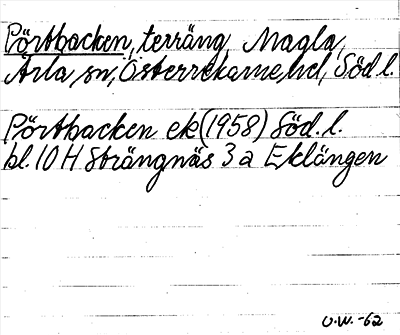 Pörtbacken, terräng Magla,
Ärla, sn, Österrekarne, hd, Söd l.
Pörtbacken ek (1958) Söd. l.
bl. 10 H Strängnäs 3 a Eklängen
O.W. -62